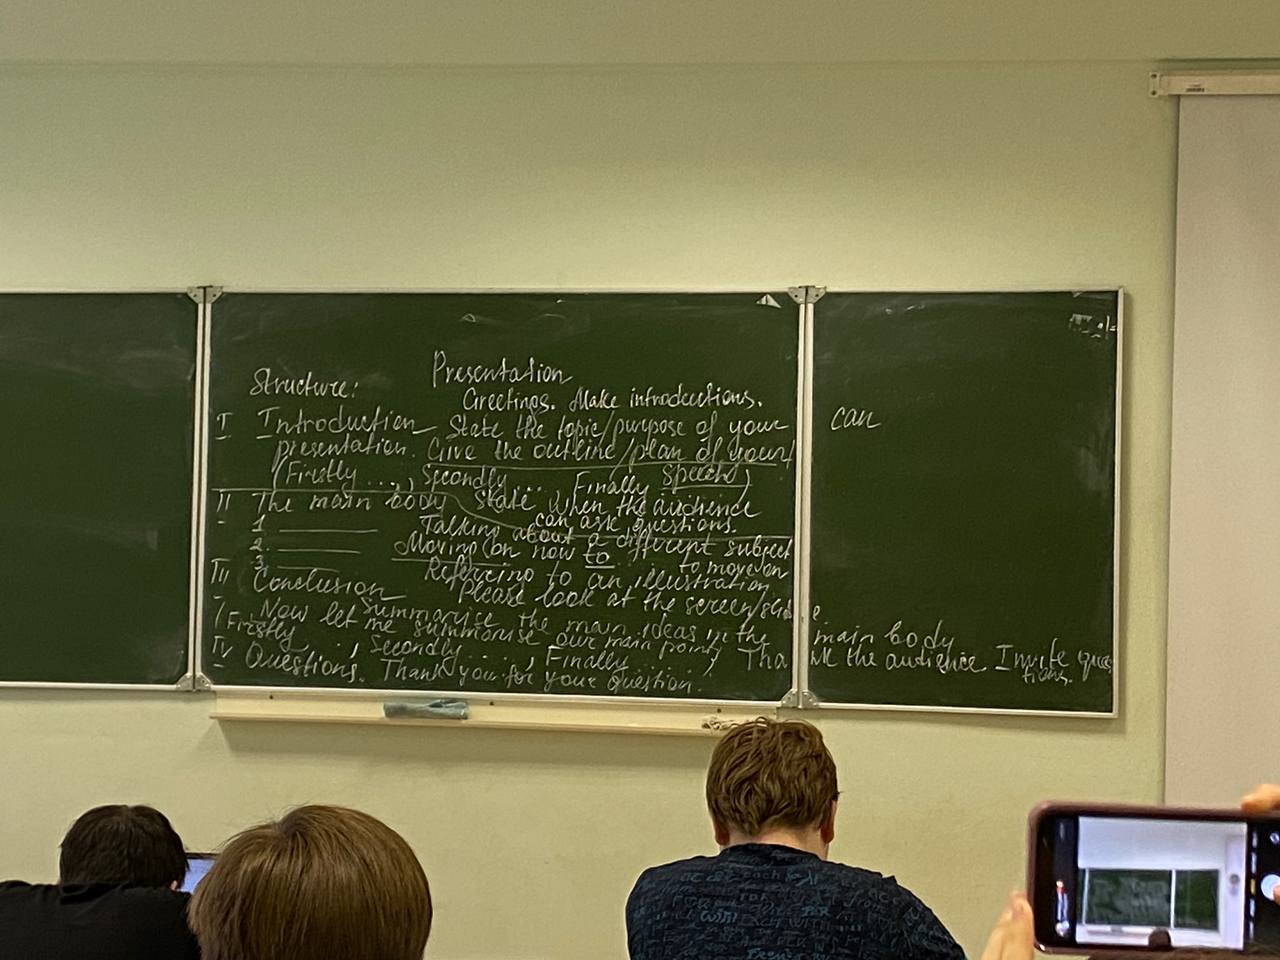 Presentation
Structure:
Greetings. Make introductions.
I Introduction State the topic/purpose of your
can
presentation. Give the outline/plan of your/
speech)
(Firstly ..., Secondly ... Finally
II The main body State when the audience
can ask questions.
1. Talking about a different subject
2. Moving on now to to move on
3. Referring to an illustration
III Conclusion Please look at the screen/slide
Summarise the main ideas in the main body
(Now let me summarise our main points
Firstly ..., Secondly ..., Finally ...) Thank the audience Invite questions.
IV Questions. Thank you for your question.